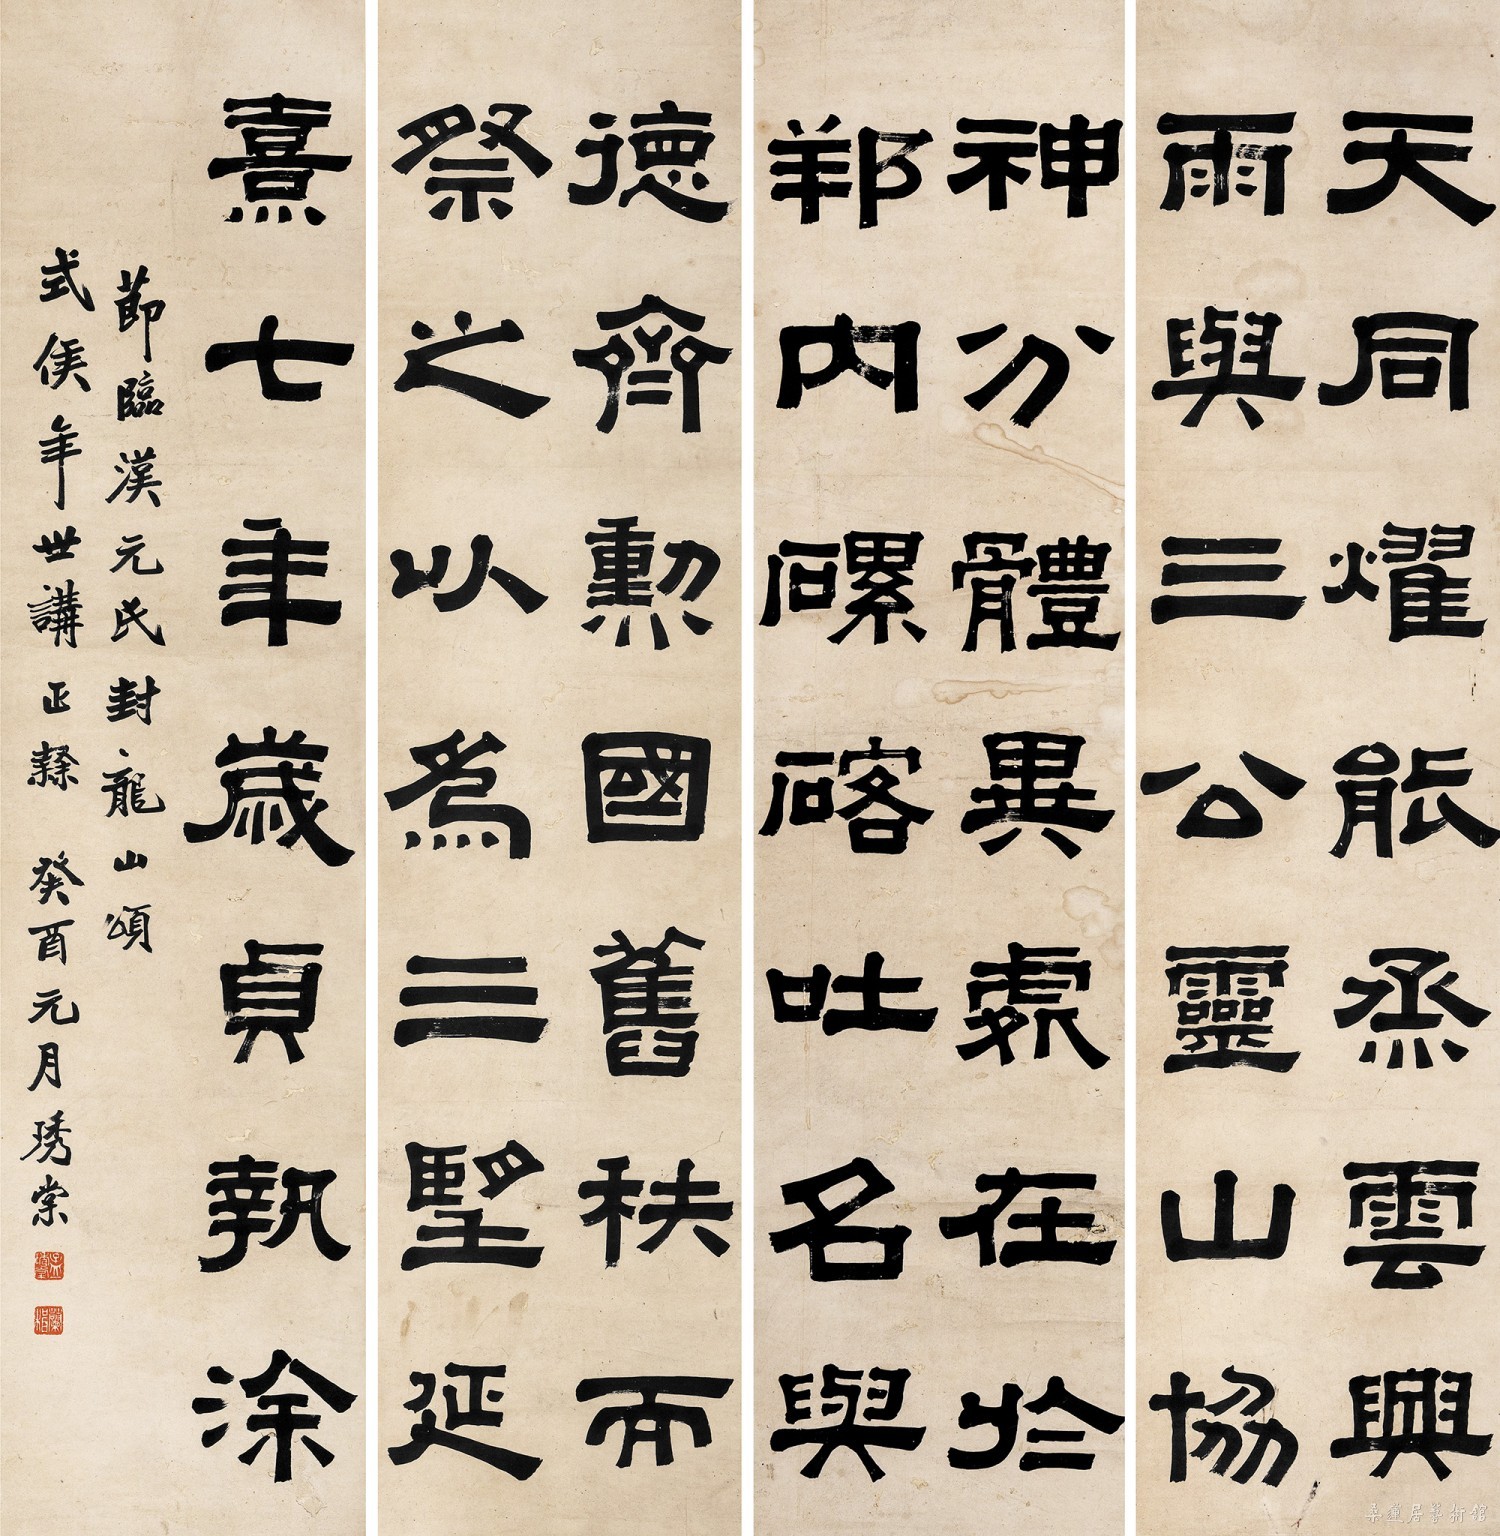 天同燿能烝雲興
雨與三公靈山協
神分體異處在於
邦内磥硌吐名與
德齊勳國舊秩而
祭之以爲三望延
熹七年歲貞執涂
節臨漢元氏封龍山頌
式侯年世講正隸 癸酉元月琇棠
桑蓮居藝術館